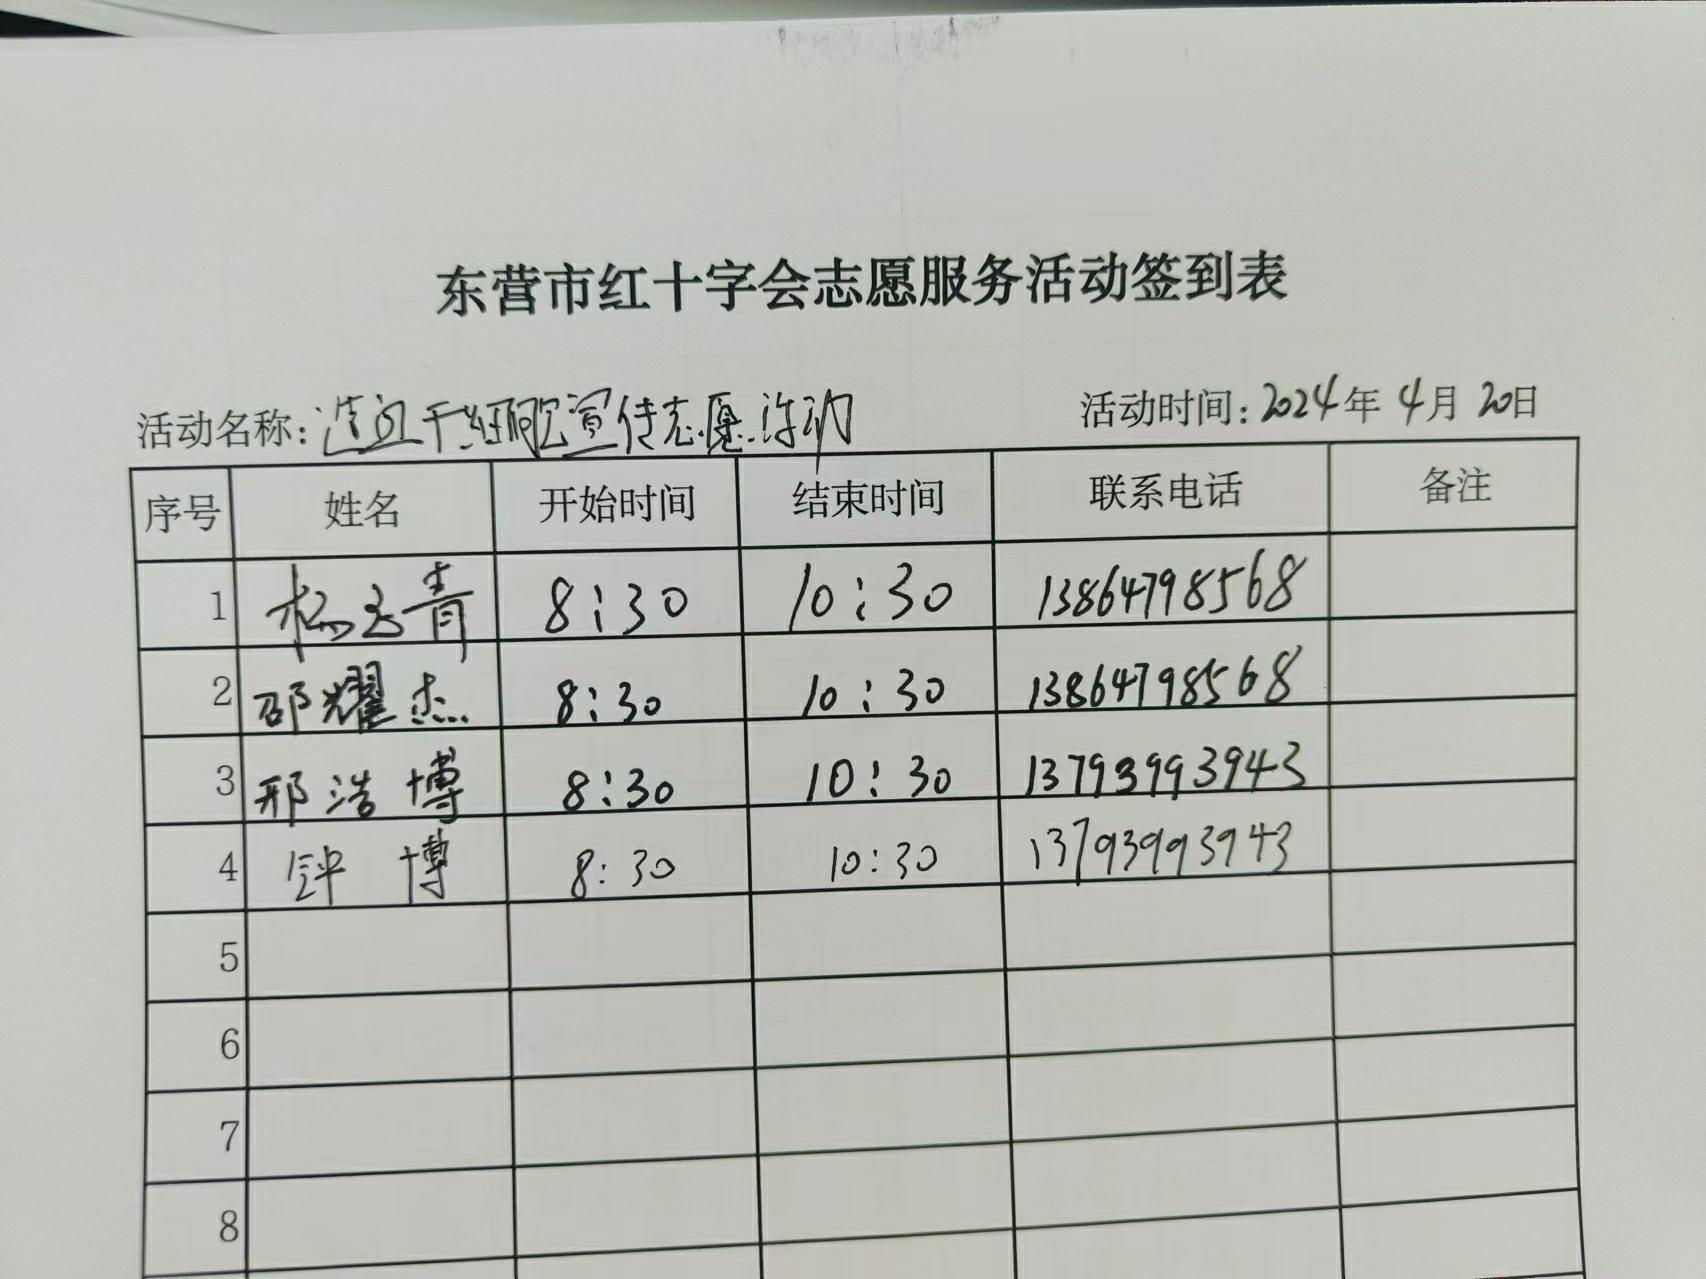 东营市红十字会志愿服务活动签到表
活动名称: 造血干细胞宣传志愿活动 活动时间: 2024年4月20日
序号 姓名 开始时间 结束时间 联系电话 备注
1 杨玉青 8:30 10:30 13864798568
2 邵耀杰 8:30 10:30 13864798568
3 邢浩博 8:30 10:30 13793993943
4 钟博 8:30 10:30 13793993943
5
6
7
8